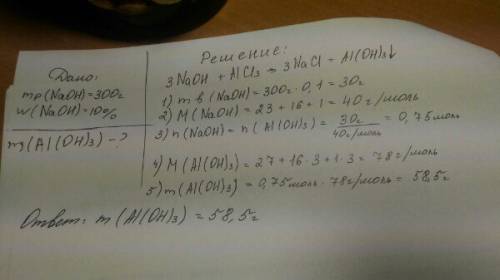 Дано:
mр(NaOH)=300г
w(NaOH)=10%
m(Al(OH)₃)-?
Решение:
3NaOH + AlCl₃ → 3NaCl + Al(OH)₃↓
1) m в (NaOH)=300г·0,1=30г
2) M(NaOH)=23+16+1=40г/моль
3) n(NaOH)=n(Al(OH)₃)= 30г/40г/моль = 0,75моль
4) M(Al(OH)₃)=27+16·3+1·3=78г/моль
5) m(Al(OH)₃)=0,75моль·78г/моль=58,5г
Ответ: m(Al(OH)₃)=58,5г